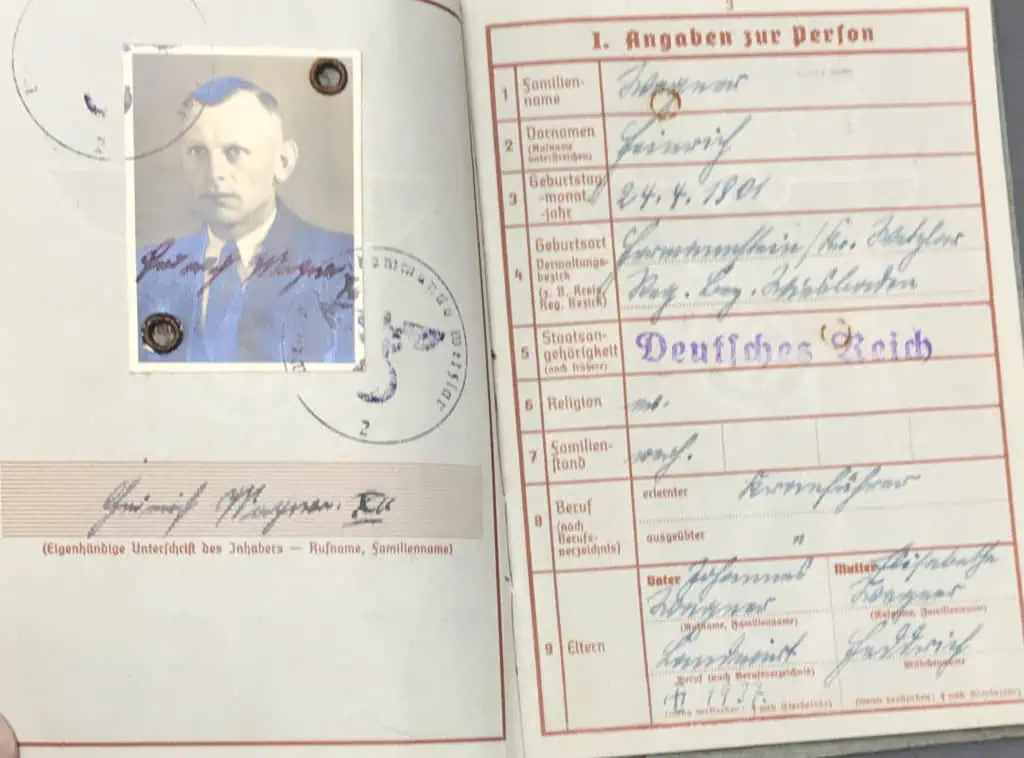 Heinrich Wagner
Kommando Wetzlar
2
Heinrich Wagner. XII
(Eigenhändige Unterschrift des Inhabers — Rufname, Familienname)
3
I. Angaben zur Person
1 Familien-
name
Wagner
2 Vornamen
(Rufname
unterstreichen)
Heinrich
3 Geburtstag,
-monat,
-jahr
24.4.1901
4 Geburtsort
Verwaltungs-
bezirk
(z. B. Kreis,
Reg. Bezirk)
Hermannstein/Kr. Wetzlar
Reg. Bez. Wiesbaden
5 Staatsan-
gehörigkeit
(auch frühere)
Deutsches Reich
6 Religion
ev.
7 Familien-
stand
verh.
8 Beruf
(nach
Berufs-
verzeichnis)
erlernter Kranführer
ausgeübter "
9 Eltern
Vater Johannes
Wagner
(Rufname, Familienname)
Landwirt
Beruf (nach Berufsverzeichnis)
1937.
(wenn verstorben: † und Sterbejahr)
Mutter Elisabetha
Wagner
(Rufname, Familienname)
Hedderich
Mädchenname
(wenn verstorben: † und Sterbejahr)